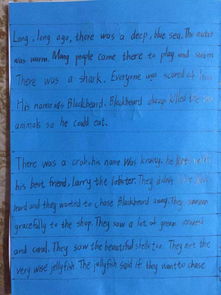 Long, long ago, there was a deep, blue sea. The water
was warm. Many people came there to play and swim
There was a shark. Everyone was scared of him
His name was Blackbeard. Blackbeard always killed the
animals so he could eat.
There was a crab, his name was kranky. he
his best friend, Larry the lobster. They didn't
beard and they wanted to chase Blackbeard away. They
gracefully to the ship. They saw a lot of green
and coral. They saw the beautiful skeleton. They met the
very wise jellyfish. The jellyfish said if they want to chase